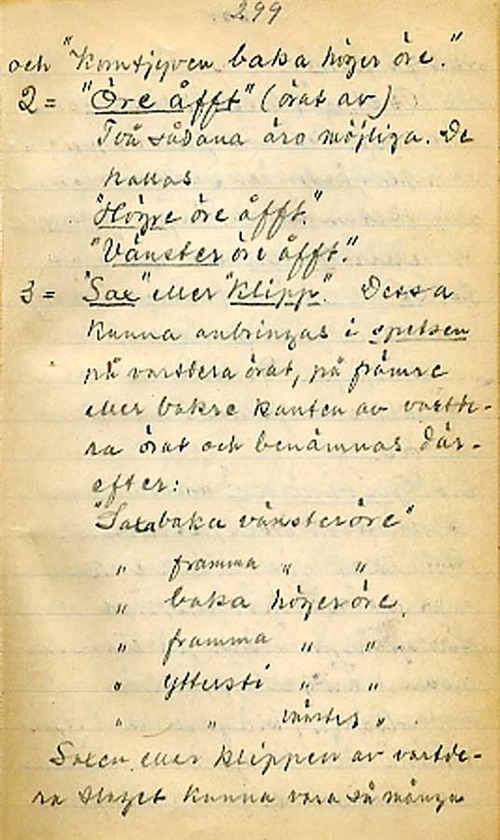 299
och "Korntjyven baka höger öre."
2 = "Öre åfft" (örat av)
Två sådana äro möjliga. De
kallas
"Högre öre åfft."
"Vänster öre åfft."
3 = "Sax" eller "klipp". Dessa
kunna anbringas i spetsen
på vartdera örat, på främre
eller bakre kanten av vartde-
ra örat och benämnas där-
efter:
"Saxa baka vänster öre"
" framma " "
" baka höger öre.
" framma " "
" ytterst i " "
" " vänster "
Saxen eller klippen av vartde-
ra slaget kunna vara så många